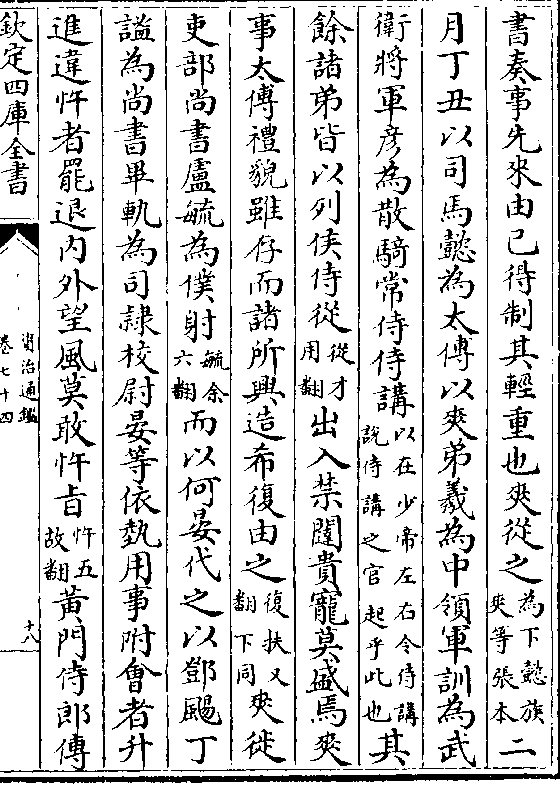 書奏事先來由己得制其輕重也爽從之為下懿族爽等張本二
月丁丑以司馬懿為太傅以爽弟羲為中領軍訓為武
衛將軍彦為散騎常侍侍講以在少帝左右令侍講說侍講之官起乎此也其
餘諸弟皆以列侯侍從從才用翻出入禁闥貴寵莫盛焉爽
事太傅禮貌雖存而諸所興造希復由之復扶又翻下同爽徙
吏部尚書盧毓為僕射毓余六翻而以何晏代之以鄧颺丁
謐為尚書畢軌為司隷校尉晏等依埶用事附會者升
進違忤者罷退内外望風莫敢忤㫖忤五故翻黄門侍郎傅
欽定四庫全書
資治通鑑
卷七十四
十八